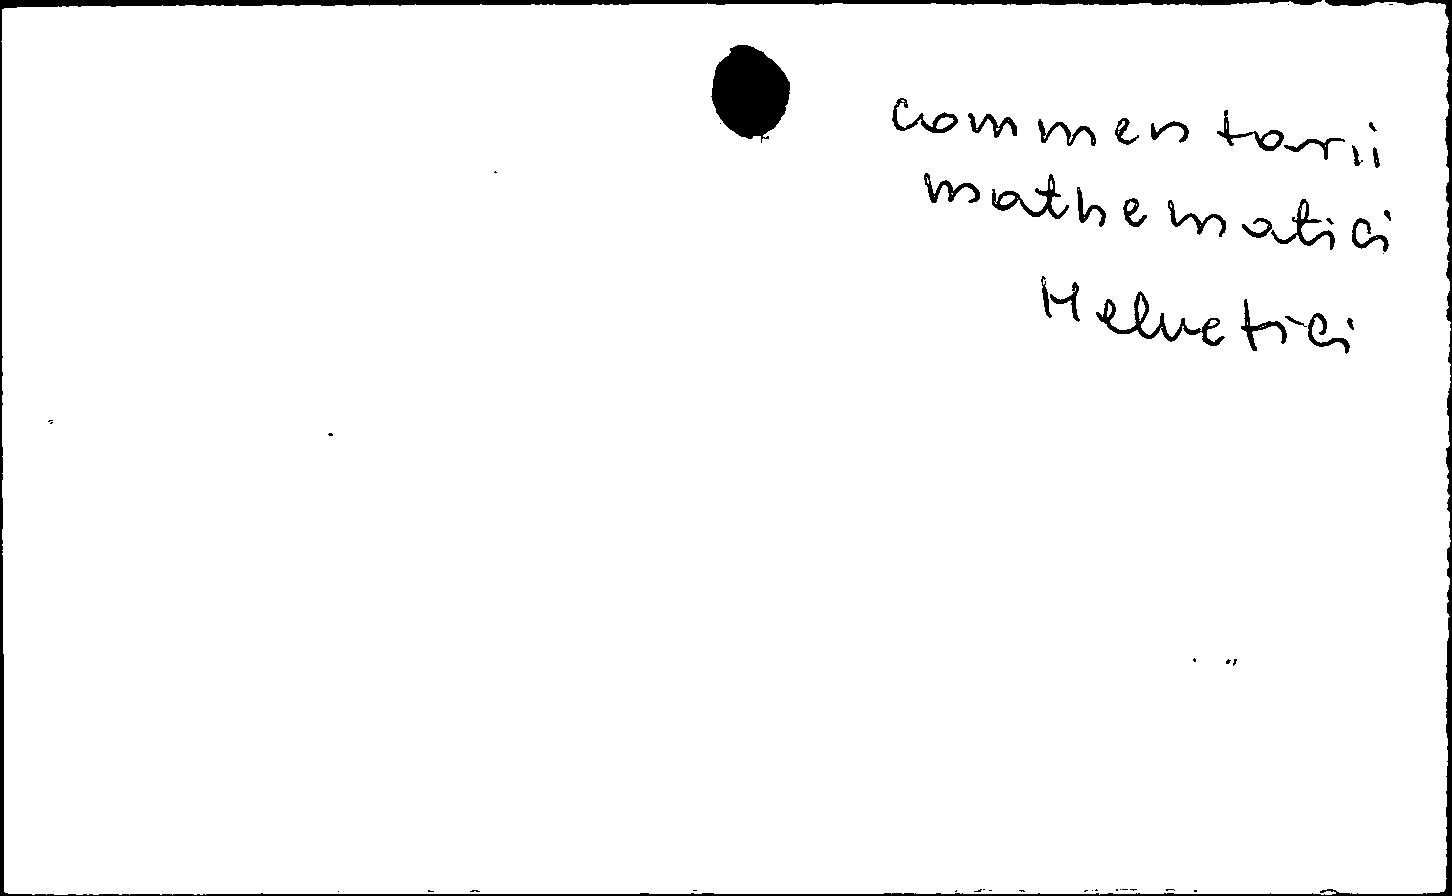 Commentarii
mathematici
Helvetici